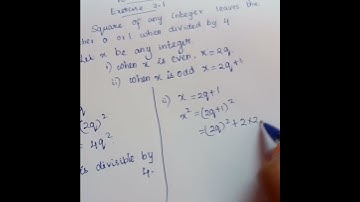 Exercise 2.1
Square of any integer leaves the
0 or 1 when divided by 4
Let x be any integer
i) when x is even, x = 2q
ii) when x is odd x = 2q+1
(2q)²
4q²
is divisible by
4.
ii) x = 2q+1
x² = (2q+1)²
= (2q)² + 2×2